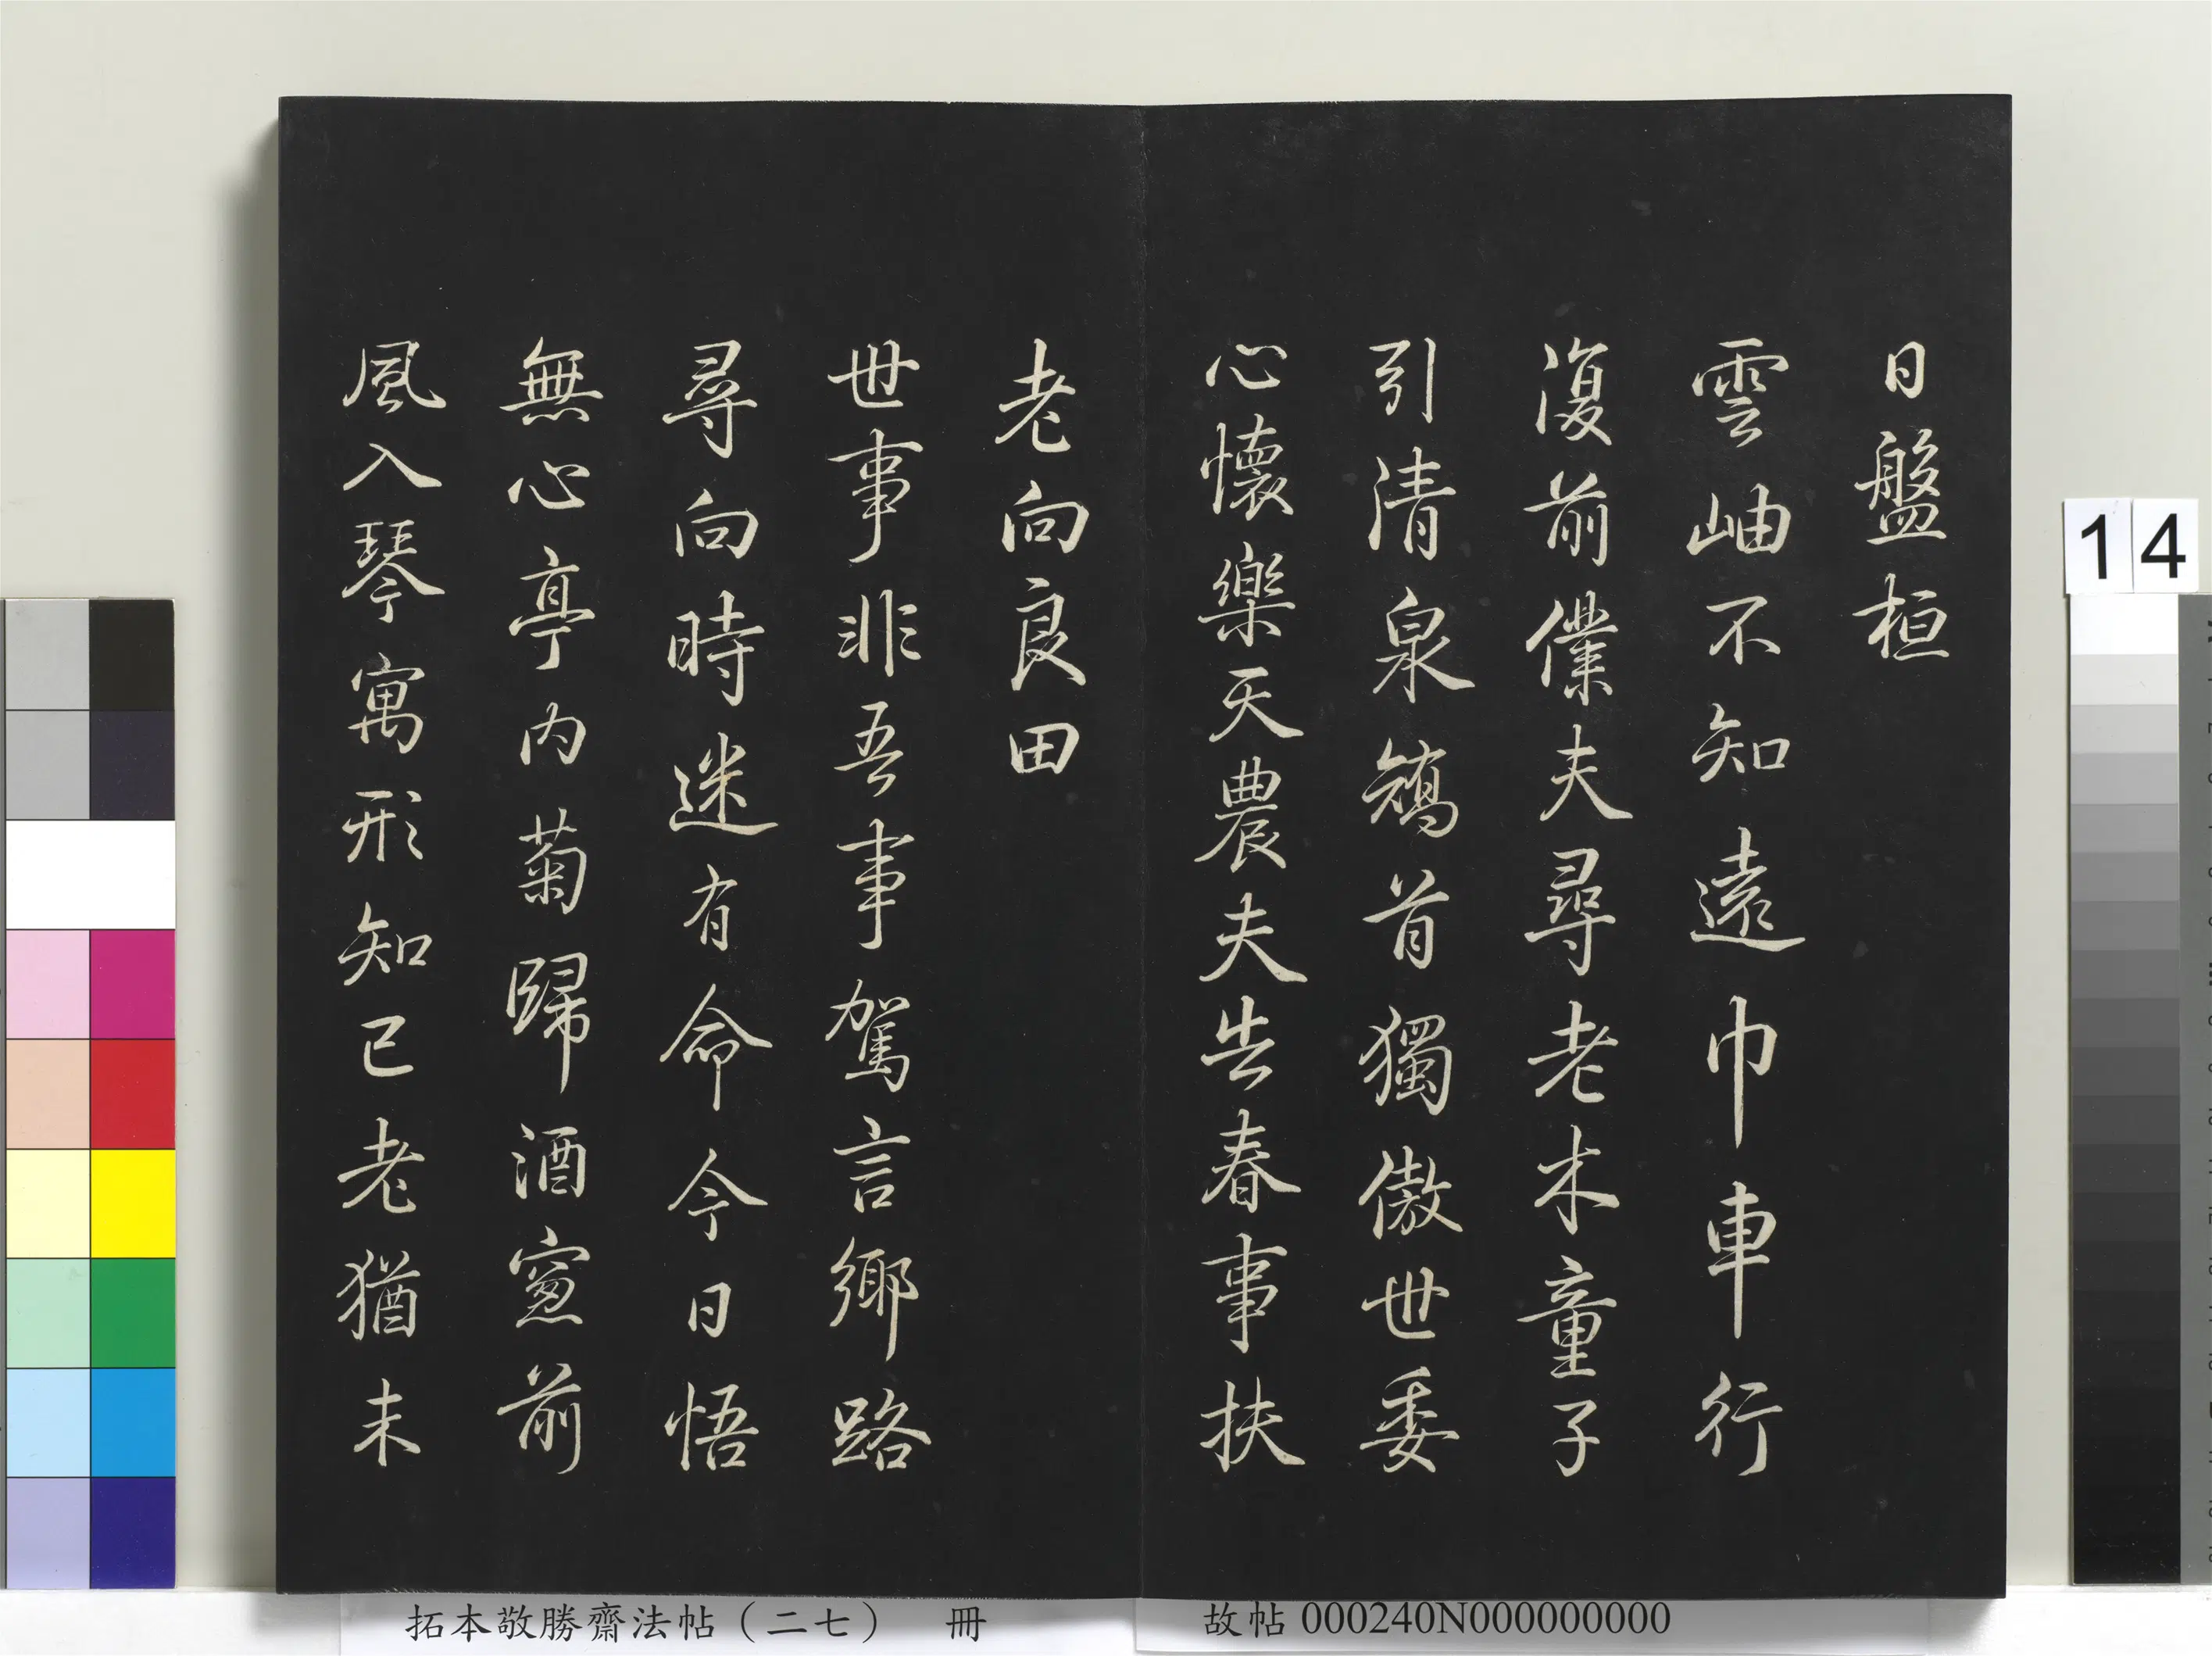 日盤桓
雲岫不知遠巾車行
復前僕夫尋老木童子
引清泉矯首獨傲世委
心懷樂天農夫告春事扶
老向良田
世事非吾事駕言鄉路
尋向時迷有命今日悟
無心亭內菊歸酒窻前
風入琴寓形知已老猶未
拓本敬勝齋法帖（二七） 冊
故帖 000240N000000000
14